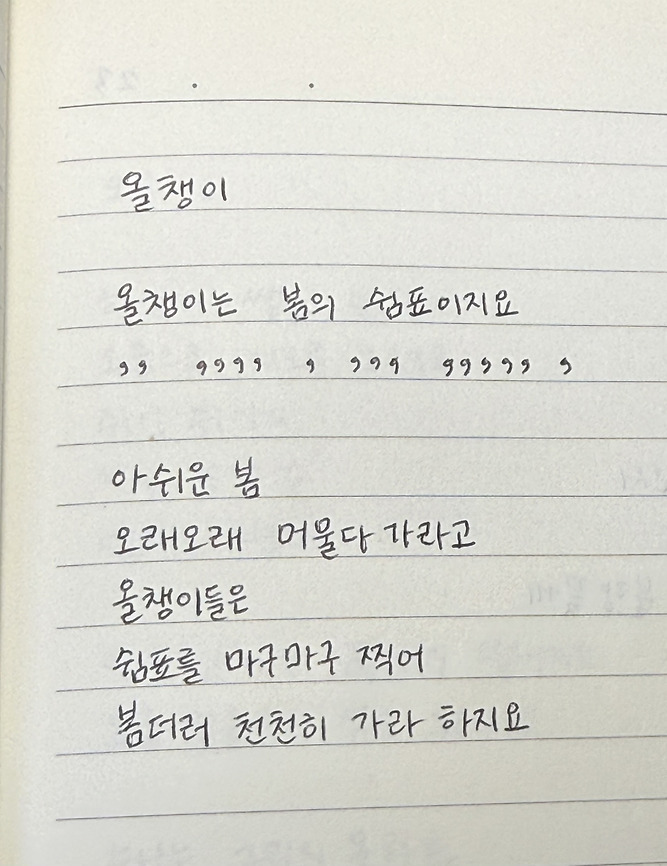 올챙이
올챙이는 봄의 쉼표이지요
,, ,,,, , ,,, ,,,,, ,
아쉬운 봄
오래오래 머물다 가라고
올챙이들은
쉼표를 마구마구 찍어
봄더러 천천히 가라 하지요